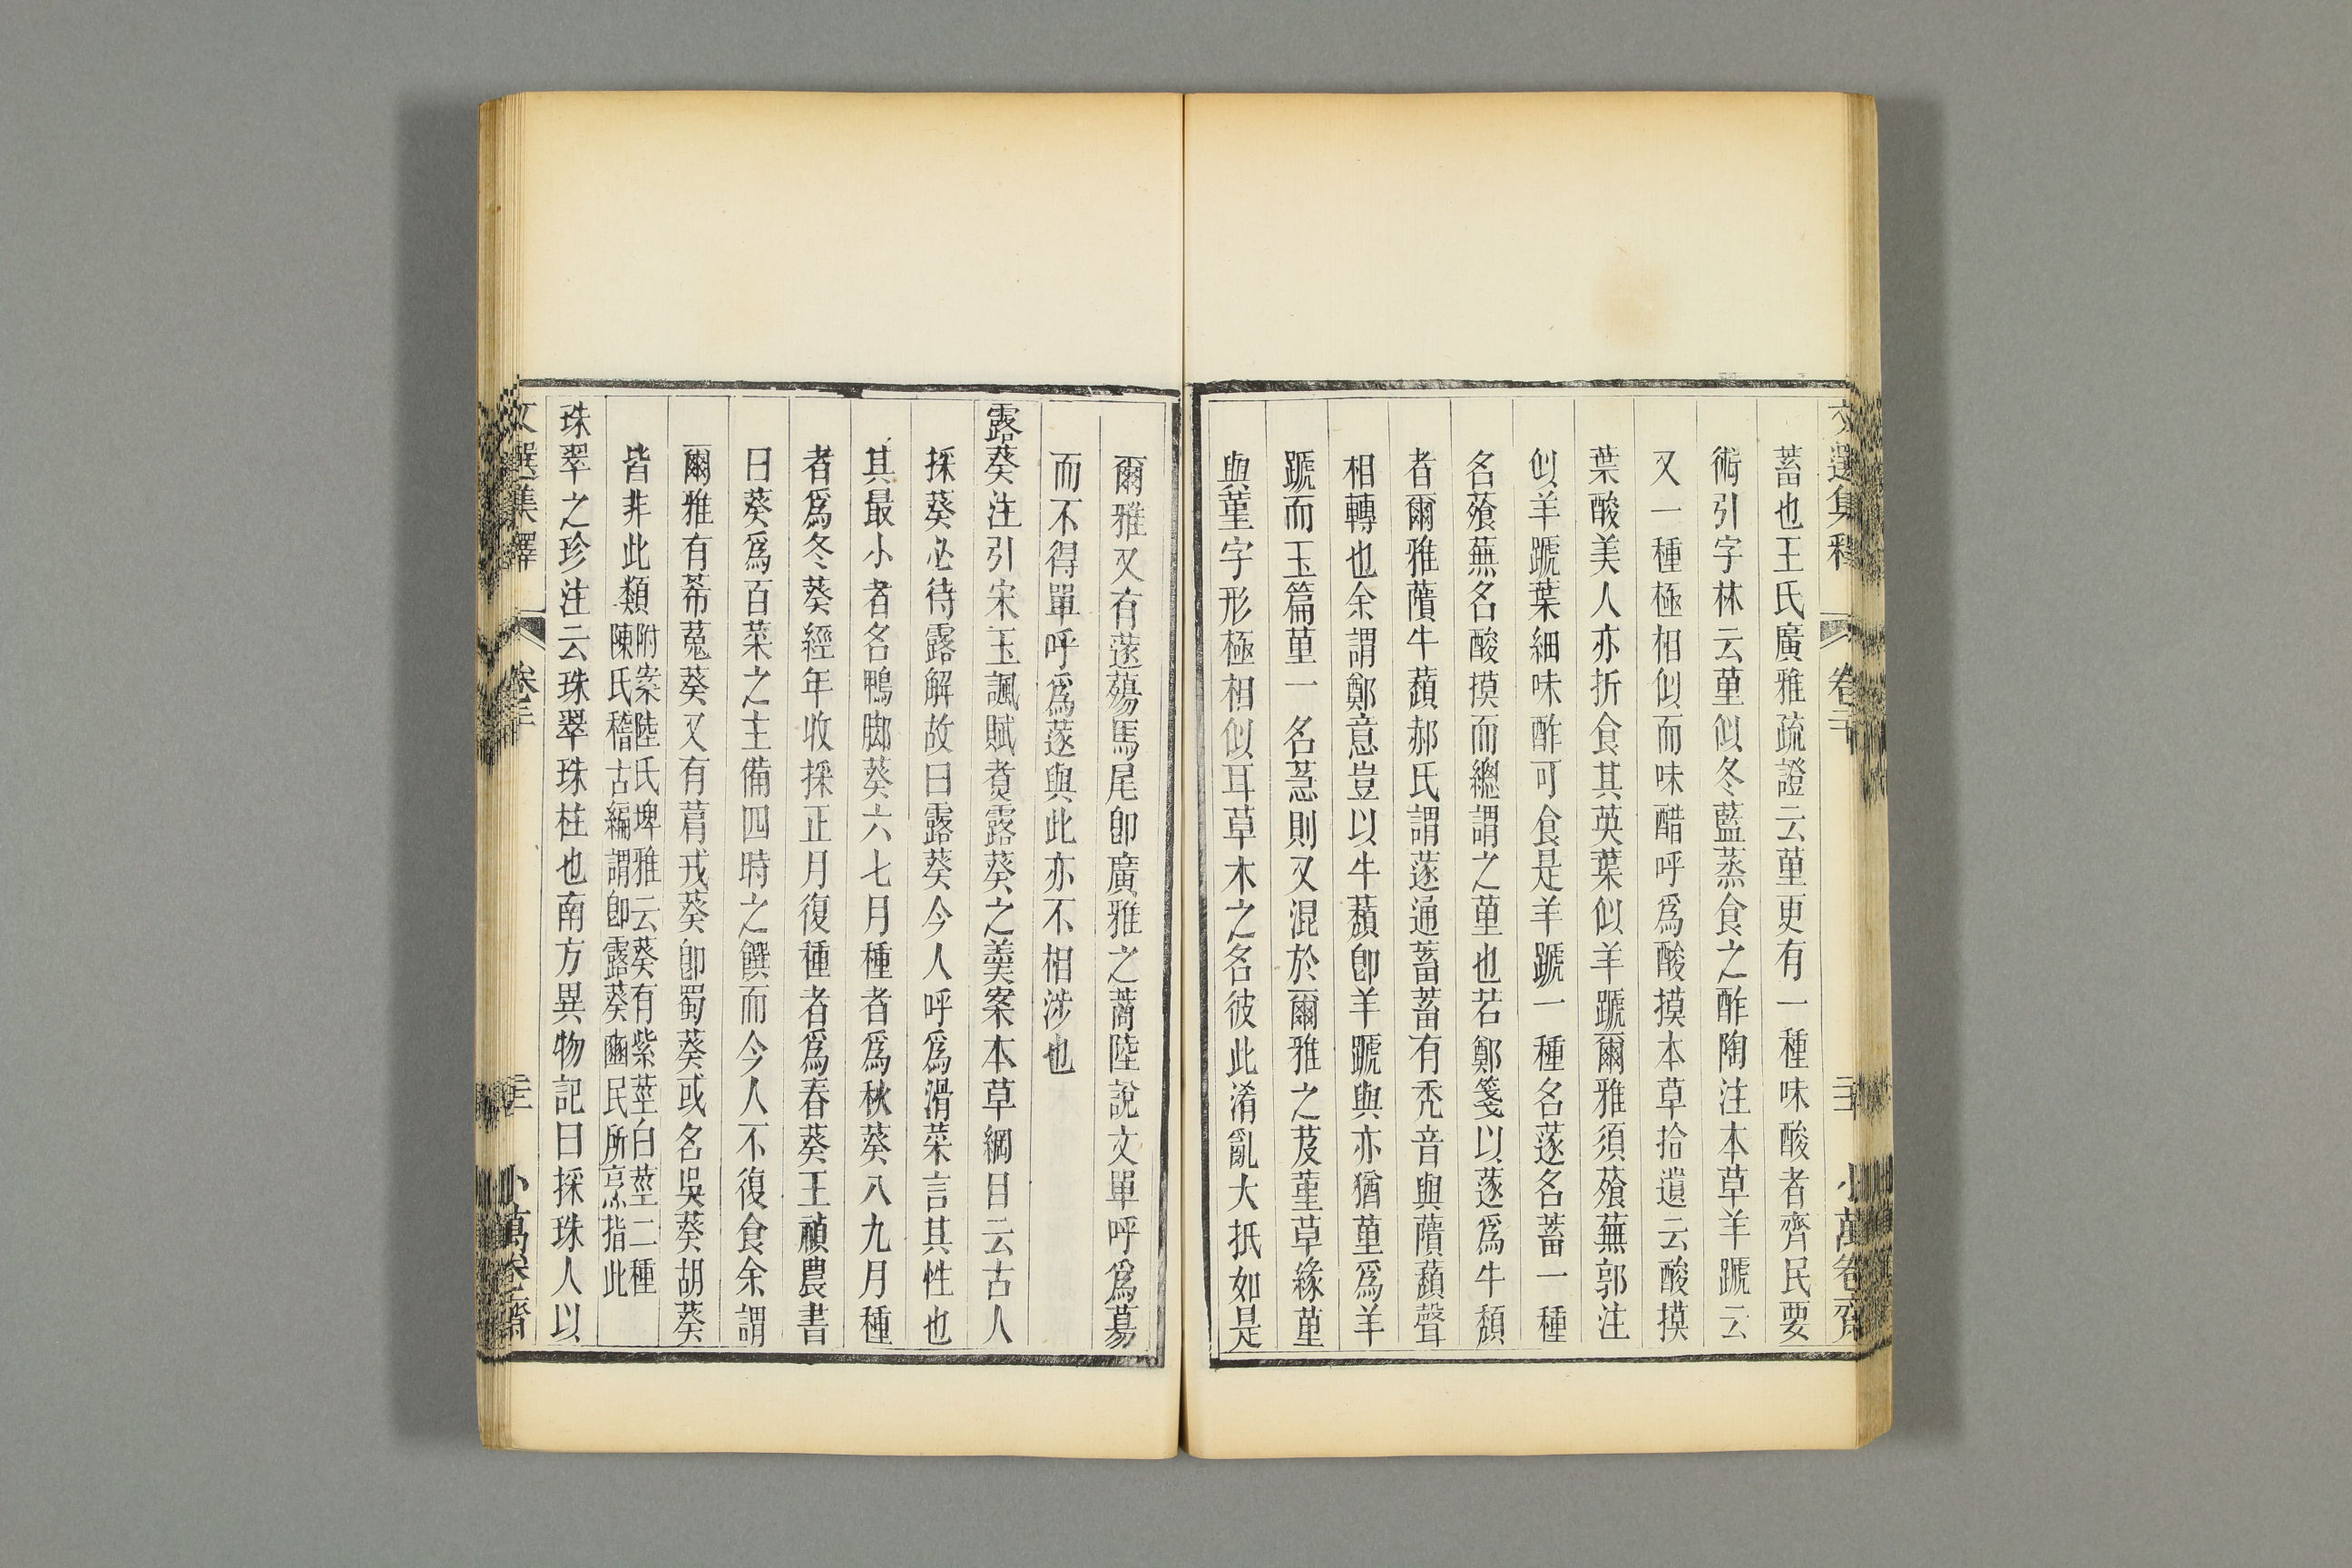 文選集釋 卷二十 二十 小萬卷齋
蓄也王氏廣雅疏證云菫更有一種味酸者齊民要
術引字林云菫似冬藍蒸食之酢陶注本草羊蹏云
又一種極相似而味醋呼爲酸摸本草拾遺云酸摸
葉酸美人亦折食其英葉似羊蹏爾雅須薞蕪郭注
似羊蹏葉細味酢可食是羊蹏一種名蓫名蓄一種
名薞蕪名酸摸而總謂之菫也若鄭箋以蓫爲牛蘈
者爾雅藬牛蘈郝氏謂蓫通蓄蓄有禿音與藬蘈聲
相轉也余謂鄭意豈以牛蘈卽羊蹏與亦猶菫爲羊
蹏而玉篇菫一名蒠則又混於爾雅之芨菫草緣菫
與董字形極相似耳草木之名彼此淆亂大抵如是
爾雅又有蓫薚馬尾卽廣雅之蔏陸說文單呼爲募
而不得單呼爲蓫與此亦不相涉也
露葵注引宋玉諷賦煑露葵之羹案本草綱目云古人
採葵必待露解故曰露葵今人呼爲滑菜言其性也
其最小者名鴨脚葵六七月種者爲秋葵八九月種
者爲冬葵經年收採正月復種者爲春葵王禎農書
曰葵爲百菜之主備四時之饌而今人不復食余謂
爾雅有莃菟葵又有菺戎葵卽蜀葵或名吳葵胡葵
皆非此類附案陸氏埤雅云葵有紫莖白莖二種
陳氏稽古編謂卽露葵豳民所烹指此
珠翠之珍注云珠翠珠柱也南方異物記曰採珠人以
文選集釋 卷二十 小萬卷齋